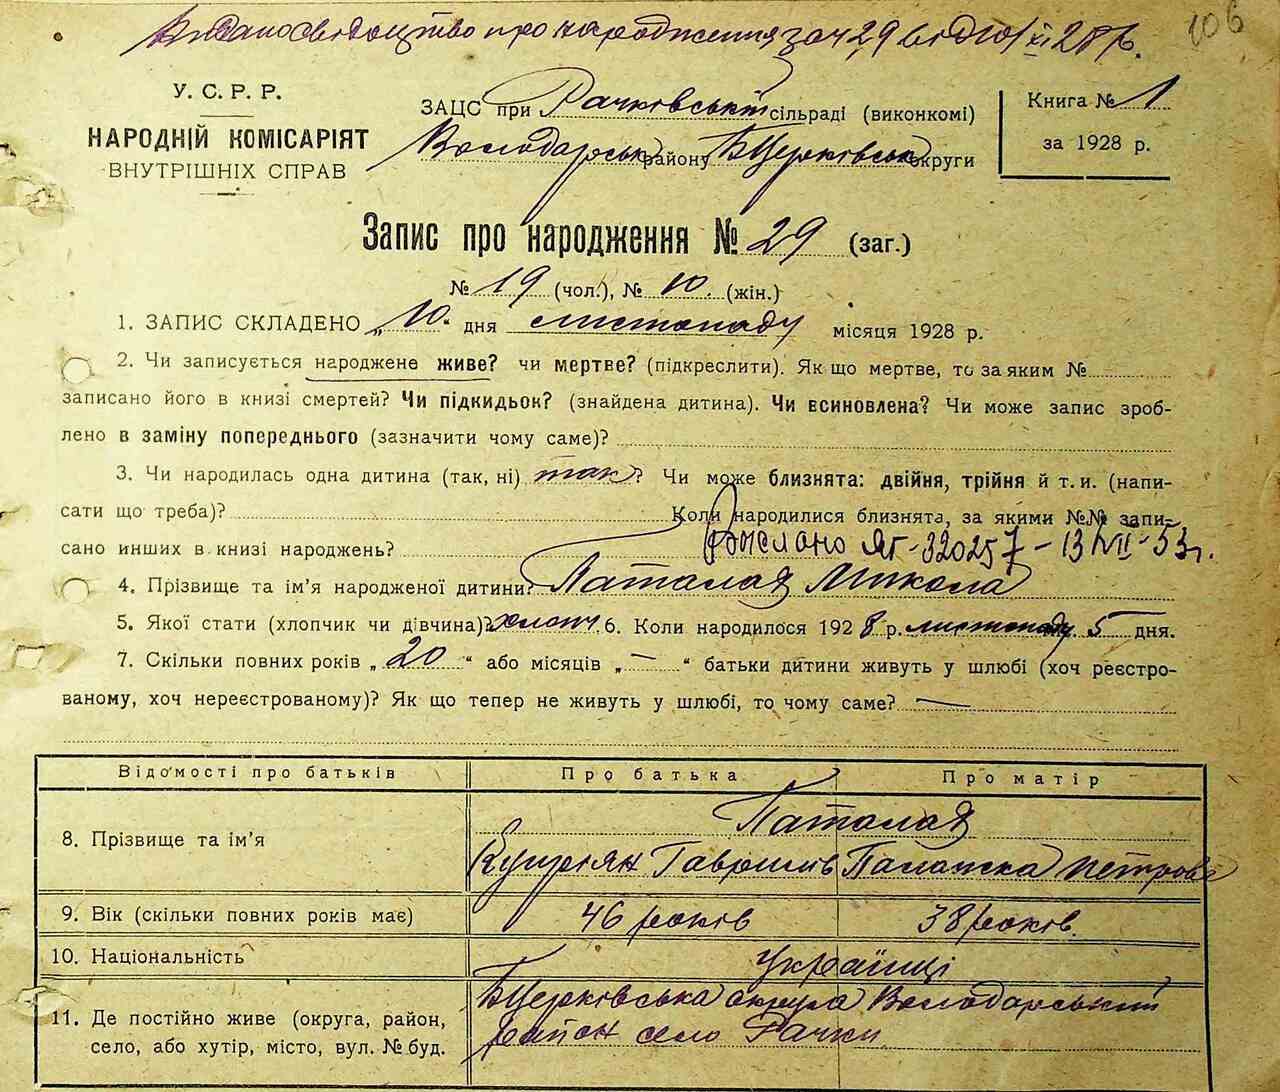 Видано свідоцтво про народження за ч 29 від 10/XI 28 р.
106
У. С. Р. Р.
НАРОДНІЙ КОМІСАРІЯТ
ВНУТРІШНІХ СПРАВ
ЗАЦС при Рачковській сільраді (виконкомі)
Володарськ району БЦерківськ округи
Книга № 1
за 1928 р.
Запис про народження № 29 (заг.)
№ 19 (чол.), № 10 (жін.)
1. ЗАПИС СКЛАДЕНО „10“ дня листопаду місяця 1928 р.
2. Чи записується народжене живе? чи мертве? (підкреслити). Як що мертве, то за яким №
записано його в книзі смертей? Чи підкидьок? (знайдена дитина). Чи всиновлена? Чи може запис зроб-
лено в заміну попереднього (зазначити чому саме)?
3. Чи народилась одна дитина (так, ні) так? Чи може близнята: двійня, трійня й т. и. (напи-
сати що треба)? Коли народилися близнята, за якими №№ запи-
сано инших в книзі народжень? Выслано ЯГ-320257 - 13/VII-53 г.
4. Прізвище та ім’я народженої дитини? Паталах Микола
5. Якої стати (хлопчик чи дівчина)? хлопч. 6. Коли народилося 1928 р. листопаду 5 дня.
7. Скільки повних років „20“ або місяців „—“ батьки дитини живуть у шлюбі (хоч реєстро-
ваному, хоч нереєстрованому)? Як що тепер не живуть у шлюбі, то чому саме? —
Відомості про батьків Про батька Про матір
8. Прізвище та ім’я Паталах
Купріян Гаврилів Палажка Петрова
9. Вік (скільки повних років має) 46 років 38 років.
10. Національність Українці
11. Де постійно живе (округа, район,
село, або хутір, місто, вул. № буд.
БЦерківська округа Володарський
район село Рачки